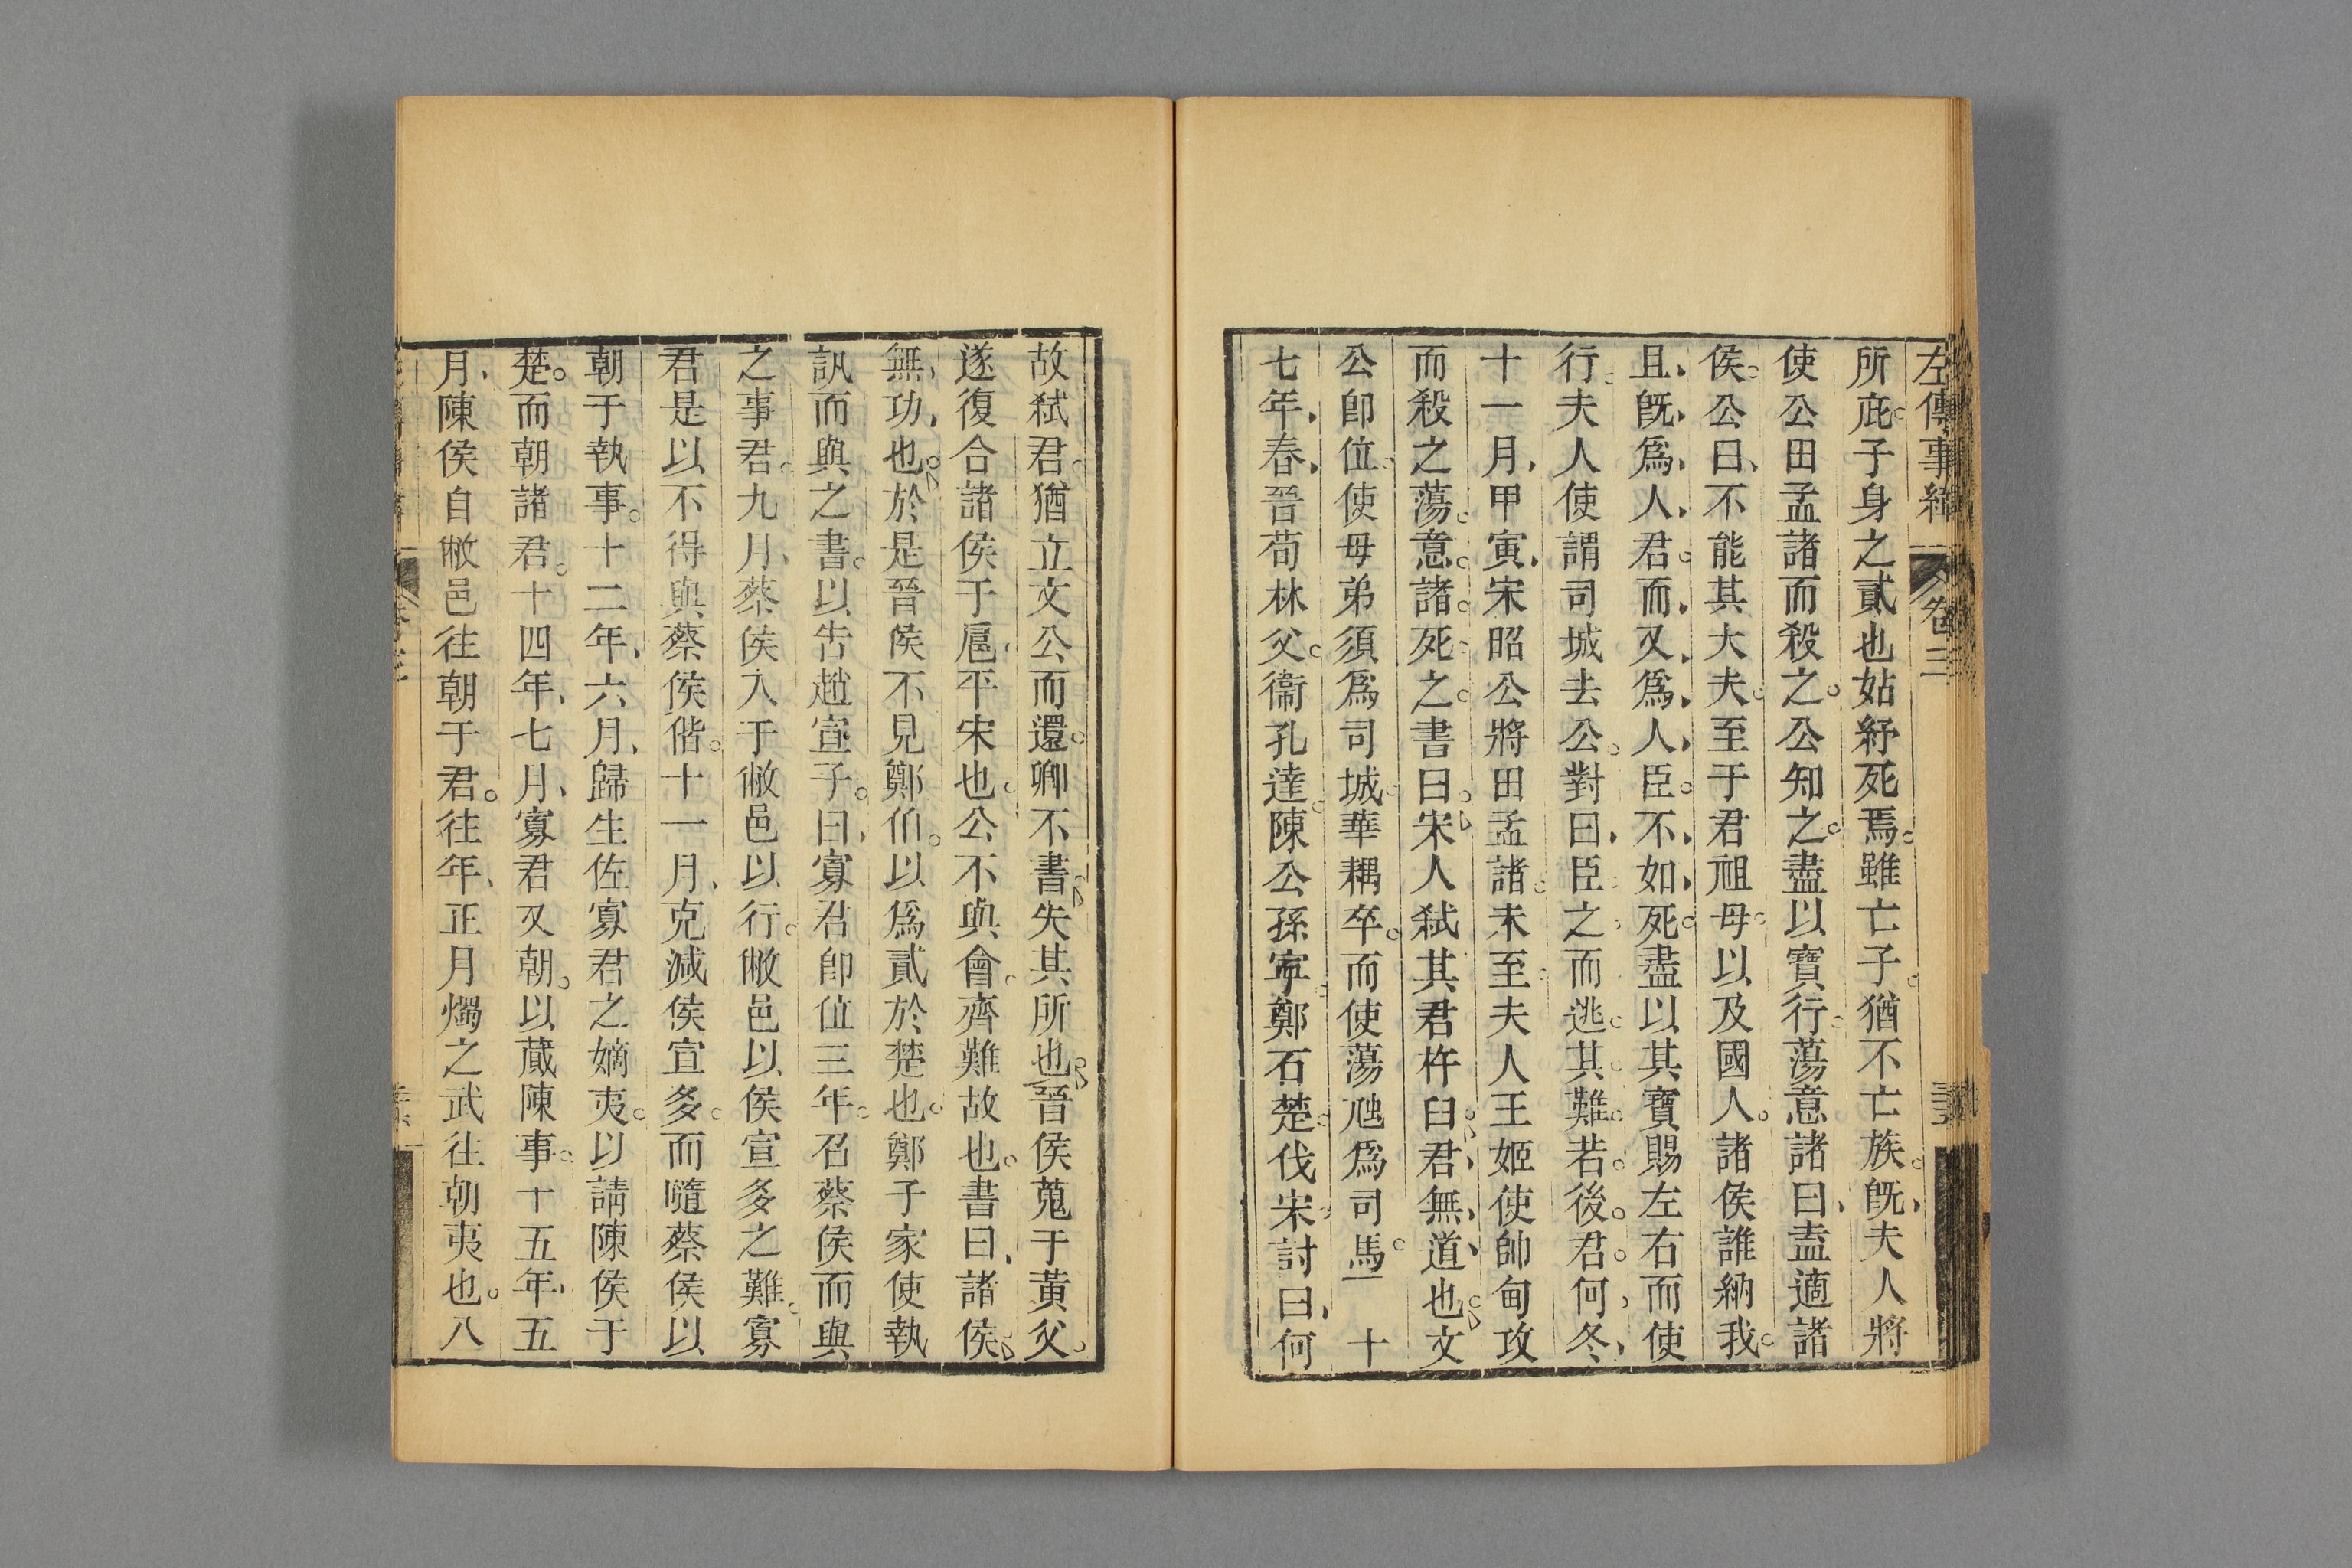 左傳事緯 卷三
所庇子身之貳也姑紓死焉雖亡子猶不亡族旣夫人將
使公田孟諸而殺之公知之盡以寶行蕩意諸曰盍適諸
侯公曰不能其大夫至于君祖母以及國人諸侯誰納我
且旣爲人君而又爲人臣不如死盡以其寶賜左右而使
行夫人使謂司城去公對曰臣之而逃其難若後君何冬
十一月甲寅宋昭公將田孟諸未至夫人王姬使帥甸攻
而殺之蕩意諸死之書曰宋人弒其君杵臼君無道也文
公卽位使母弟須爲司城華耦卒而使蕩虺爲司馬 十
七年春晉荀林父衞孔達陳公孫寧鄭石楚伐宋討曰何
故弒君猶立文公而還卿不書失其所也晉侯蒐于黃父
遂復合諸侯于扈平宋也公不與會齊難故也書曰諸侯
無功也於是晉侯不見鄭伯以爲貳於楚也鄭子家使執
訊而與之書以告趙宣子曰寡君卽位三年召蔡侯而與
之事君九月蔡侯入于敝邑以行敝邑以侯宣多之難寡
君是以不得與蔡侯偕十一月克減侯宣多而隨蔡侯以
朝于執事十二年六月歸生佐寡君之嫡夷以請陳侯于
楚而朝諸君十四年七月寡君又朝以蕆陳事十五年五
月陳侯自敝邑往朝于君往年正月燭之武往朝夷也八